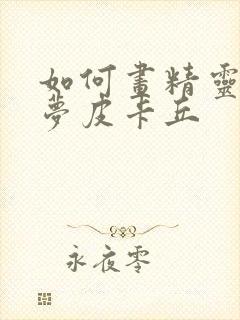 如何畫精靈
夢皮卡丘
永夜零